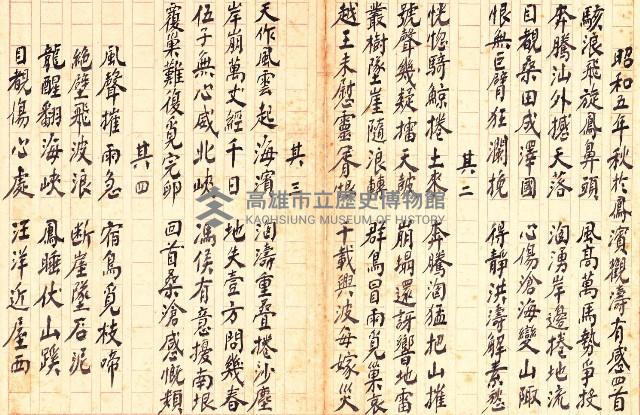 昭和五年秋於鳳濱觀濤有感四首
駭浪飛旋鳳鼻頭 風高萬馬勢爭投
奔騰汕外撼天落 洶湧岸邊捲地流
目觀桑田成澤國 心傷滄海變山陬
恨無巨臂狂瀾挽 得靜洪濤解素愁
其二
恍惚騎鯨捲土來 奔騰洶猛把山摧
號聲幾疑擂天皷 崩塌還訝響地雷
叢樹墜崖隨浪轉 群鳥冒雨覓巢哀
越王未慰靈胥恨 十載興波每嫁災
其三
天作風雲起海濱 洶濤重疊捲沙塵
岸崩萬丈經千日 地失壹方問幾春
伍子無心威北峽 馮侯有意擾南垠
覆巢難復覓完卵 回首桑滄感慨頻
其四
風聲摧雨急 宿鳥覓枝啼
絕壁飛波浪 断崖墜石泥
龍醒翻海峽 鳳睡伏山蹊
目觀傷心處 汪洋近屋西
高雄市立歷史博物館
KAOHSIUNG MUSEUM OF HISTORY